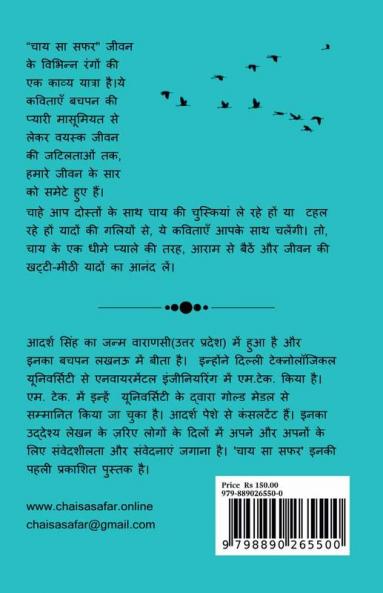 "चाय सा सफर" जीवन
के विभिन्न रंगों की
एक काव्य यात्रा है।ये
कविताएँ बचपन की
प्यारी मासूमियत से
लेकर वयस्क जीवन
की जटिलताओं तक,
हमारे जीवन के सार
को समेटे हुए हैं।
चाहे आप दोस्तों के साथ चाय की चुस्कियां ले रहे हों या टहल
रहे हों यादों की गलियों से, ये कविताएँ आपके साथ चलेंगी। तो,
चाय के एक धीमे प्याले की तरह, आराम से बैठें और जीवन की
खट्टी-मीठी यादों का आनंद लें।
आदर्श सिंह का जन्म वाराणसी(उत्तर प्रदेश) में हुआ है और
इनका बचपन लखनऊ में बीता है। इन्होंने दिल्ली टेक्नोलॉजिकल
यूनिवर्सिटी से एनवायरमेंटल इंजीनियरिंग में एम.टेक. किया है।
एम. टेक. में इन्हें यूनिवर्सिटी के द्वारा गोल्ड मेडल से
सम्मानित किया जा चुका है। आदर्श पेशे से कंसलटेंट हैं। इनका
उद्देश्य लेखन के ज़रिए लोगों के दिलों में अपने और अपनों के
लिए संवेदशीलता और संवेदनाएं जगाना है। 'चाय सा सफर' इनकी
पहली प्रकाशित पुस्तक है।
Price Rs 150.00
979-889026550-0
www.chaisasafar.online
chaisasafar@gmail.com
9 798890 265500